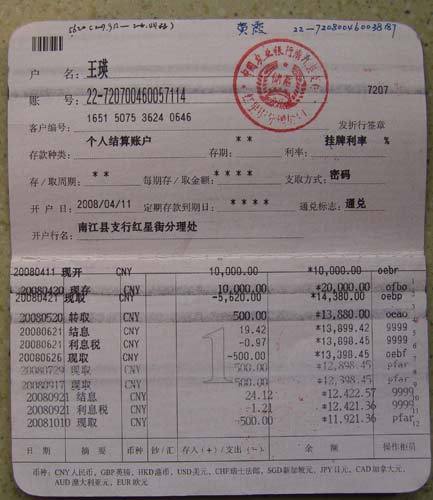 黄霞 22-720800460038787
户 名: 王瑛
账 号: 22-720700460057114 7207
客户编号: 1651 5075 3624 0646 发折行签章
存款种类: 个人结算账户 存期: ** 利率: 挂牌利率 %
存/取周期: ** 每期存/取金额: **** 支取方式: 密码
开 户 日: 2008/04/11 定期存款到期日: **** 通兑标志: 通兑
开户行名: 南江县支行红星街分理处
20080411 现开 CNY 10,000.00 *10,000.00 oebr
20080420 现存 CNY 10,000.00 *20,000.00 ofbo
20080421 现取 CNY -5,620.00 *14,380.00 oebp
20080520 转取 CNY 500.00 *13,880.00 oeao
20080621 结息 CNY 19.42 *13,899.42 9999
20080621 利息税 CNY -0.97 *13,898.45 9999
20080626 现取 CNY -500.00 *13,398.45 oebf
20080729 现取 CNY 500.00 *12,898.45 pfar
20080917 现取 CNY 500.00 *12,398.45 pfar
20080921 结息 CNY 24.12 *12,422.57 9999
20080921 利息税 CNY -1.21 *12,421.36 9999
20081010 现取 CNY -500.00 *11,921.36 pfar
日 期 摘要 币种 钞/汇 存入(+)/支出(-) 余 额 操作柜员
币种: CNY人民币, GBP英镑, HKD港币, USD美元, CHF瑞士法郎, SGD新加坡元, JPY日元, CAD加拿大元,
AUD澳大利亚元, EUR欧元